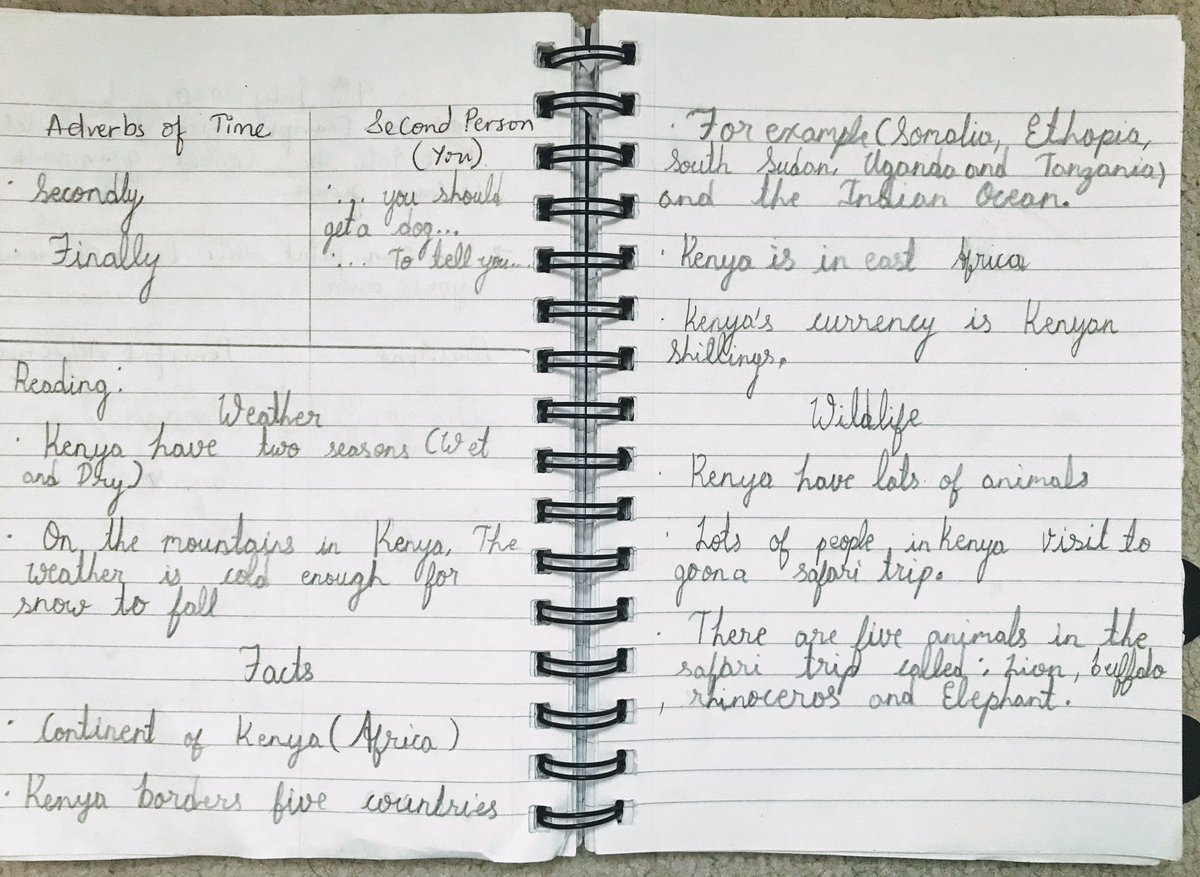 Adverbs of Time
Second Person
(You)
· Secondly
· ... you should
get a dog...
· Finally
· ... To tell you...
Reading:
Weather
· Kenya have two seasons (Wet
and Dry)
· On the mountains in Kenya, The
weather is cold enough for
snow to fall
Facts
· Continent of Kenya (Africa)
· Kenya borders five countries
· For example (Somalia, Ethopia,
South Sudan, Uganda and Tanzania)
and the Indian Ocean.
· Kenya is in east Africa
· Kenya's currency is Kenyan
shillings.
Wildlife
· Kenya have lots of animals
· Lots of people in Kenya visit to
go on a safari trip.
· There are five animals in the
safari trip called: Lion, buffalo
, rhinoceros and Elephant.